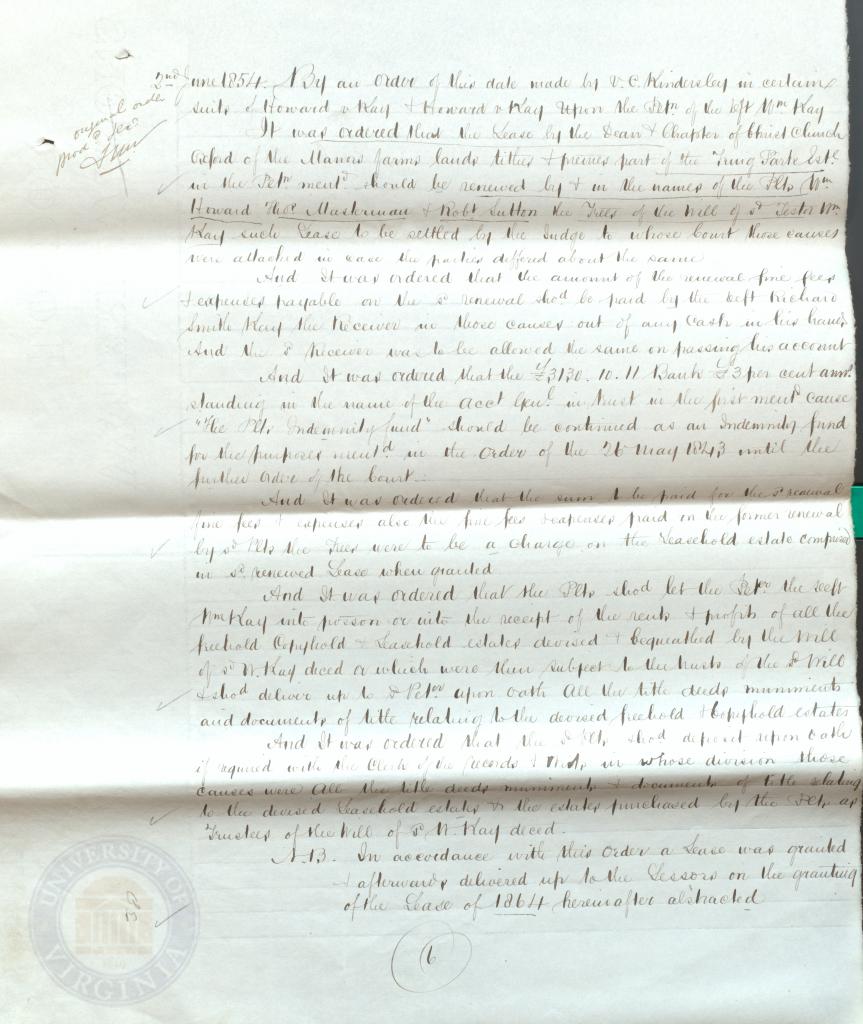 2nd June 1854. By an Order of this date made by V. C. Kindersley in certain
suits of Howard v Kay & Howard v Kay Upon the Petn of the Deft Wm Kay
original order
prod
It was ordered that the Lease by the Dean & Chapter of Christ Church
Oxford of the Manors farms lands tithes & premes part of the Tring Park Este
in the Petn mentd should be renewed by & in the names of the Plts Wm
Howard Thos Masterman & Robt Sutton the Trees of the Will of sd Testor Wm
Kay such Lease to be settled by the Judge to whose Court those causes
were attached in case the parties differed about the same
And It was ordered that the amount of the renewal fine fees
& expenses payable on the sd renewal shod be paid by the Deft Richard
Smith Kay the Receiver in those causes out of any Cash in his hands
And the sd Receiver was to be allowed the same on passing his account
And It was ordered that the £3130. 10. 11 Bank £3 per cent anns
standing in the name of the Acct Genl in trust in the first mentd cause
"The Plts Indemnity fund" should be continued as an Indemnity fund
for the purposes mentd in the Order of the 26 May 1843 until the
further Order of the Court.
And It was ordered that the sum to be paid for the sd renewal
fine fees & expenses also the fine fees & expenses paid on the former renewal
by sd Plts the Trees were to be a charge on the Leasehold estate comprised
in sd renewed Lease when granted
And It was ordered that the Plts shod let the Petnr the Deft
Wm Kay into posson or into the receipt of the rents & profits of all the
freehold Copyhold & Leasehold estates devised & bequeathed by the Will
of sd W. Kay deced or which were then subject to the trusts of the sd Will
& shod deliver up to sd Petnr upon oath All the title deeds muniments
and documents of title relating to the devised freehold & Copyhold estates
And It was ordered that the sd Plts shod deposit upon oath
if required with the Clerk of the Records & Writs in whose division those
causes were All the title deeds muniments & documents of title relating
to the devised Leasehold estates & the estates purchased by the Plts as
Trustees of the Will of sd W. Kay deced.
N.B. In accordance with this Order a Lease was granted
& afterwards delivered up to the Lessors on the granting
of the Lease of 1864 hereinafter abstracted
6
UNIVERSITY OF VIRGINIA